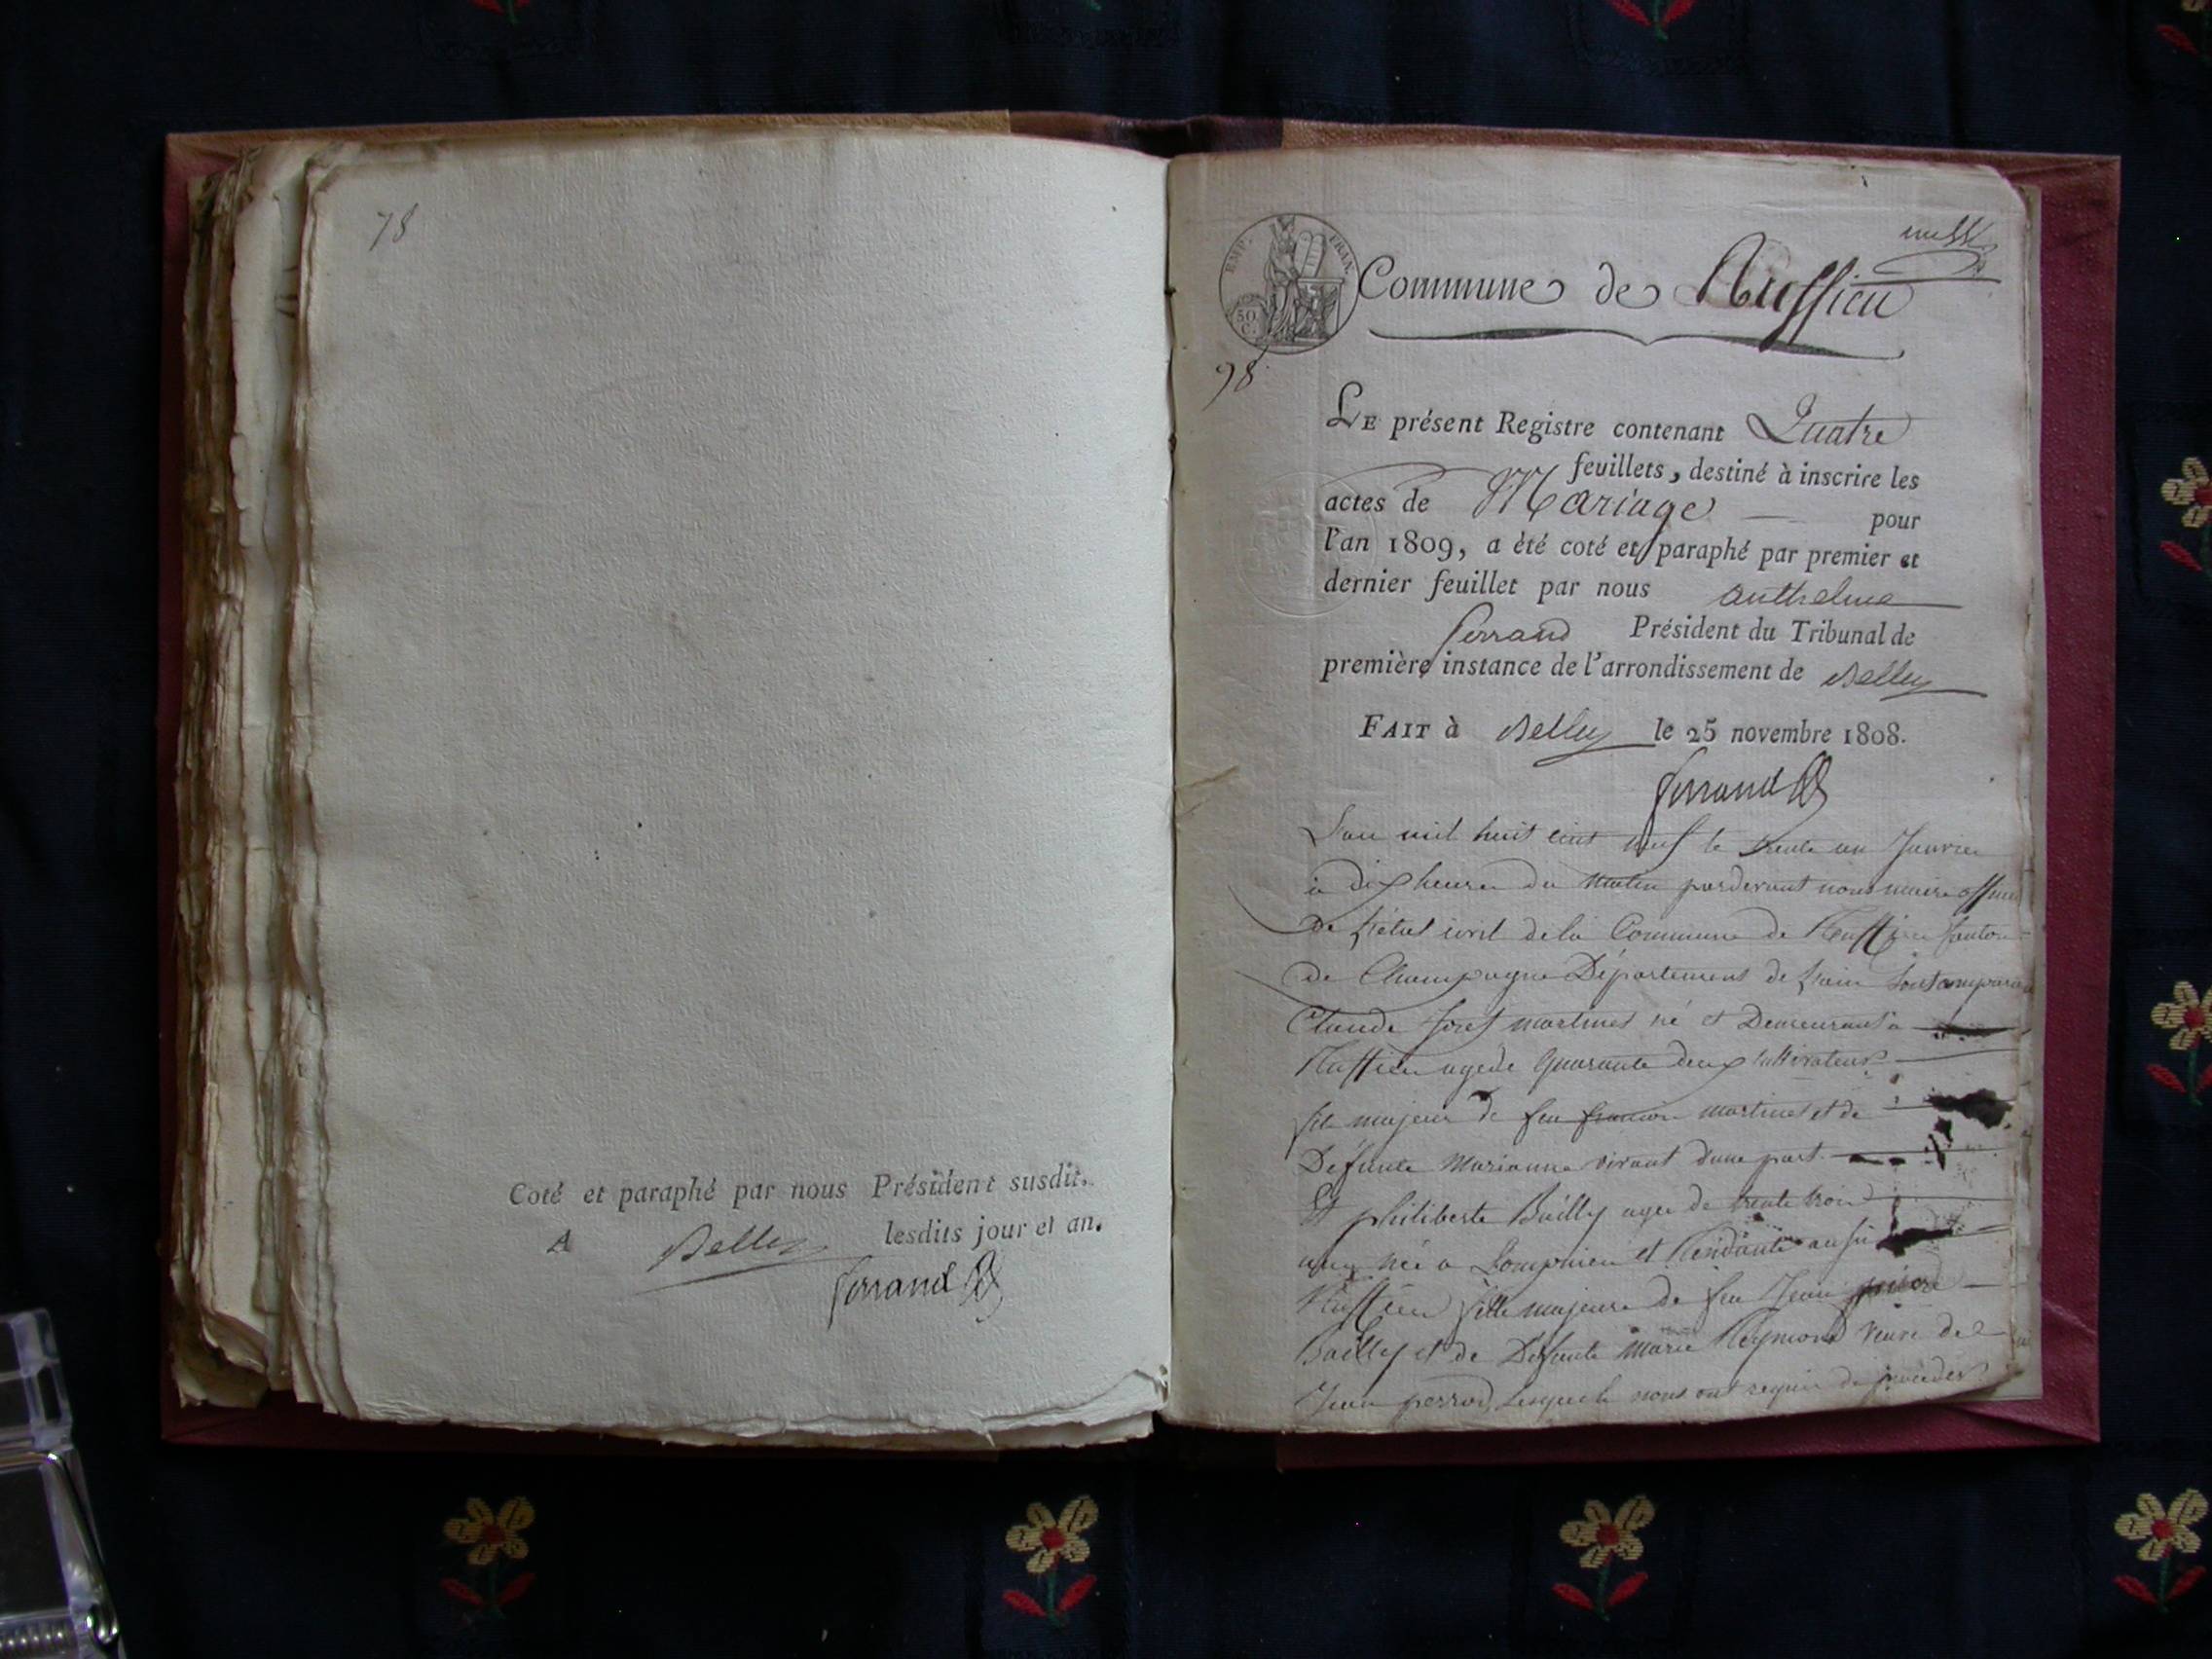 78
Coté et paraphé par nous Président susdit.
A Belley lesdits jour et an.
ferrand
EMP. FRAN.
50 C.
Commune de Ruffieu
98
LE présent Registre contenant Quatre
feuillets, destiné à inscrire les
actes de Mariage pour
l'an 1809, a été coté et paraphé par premier et
dernier feuillet par nous anthelme
ferrand Président du Tribunal de
première instance de l'arrondissement de Belley
FAIT à Belley le 25 novembre 1808.
ferrand
L'an mil huit cent neuf le trente un Janvier
à dix heures du matin pardevant nous maire officier
De l'état civil de la Commune de Ruffieu Canton
de Champagne Département de l'ain sont comparus
Claude martinet né et Demeurant a
Ruffieu agé de quarante deux cultivateur
fils majeur de feu martinet et de
Défunte Marianne d'une part
Et philiberte Bailly agee de trente trois
ans née a et Residante aussi
Ruffieu fille majeure de feu Jean
Bailly et de Défunte Marie Reymond veuve de
Jean perrod, Lesquels nous ont requis de procéder